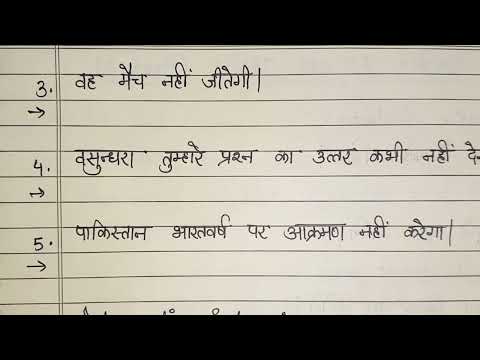 3. वह मैच नहीं जीतेगी।
→
4. वसुन्धरा तुम्हारे प्रश्न का उत्तर कभी नहीं
→
5. पाकिस्तान भारतवर्ष पर आक्रमण नहीं करेगा।
→